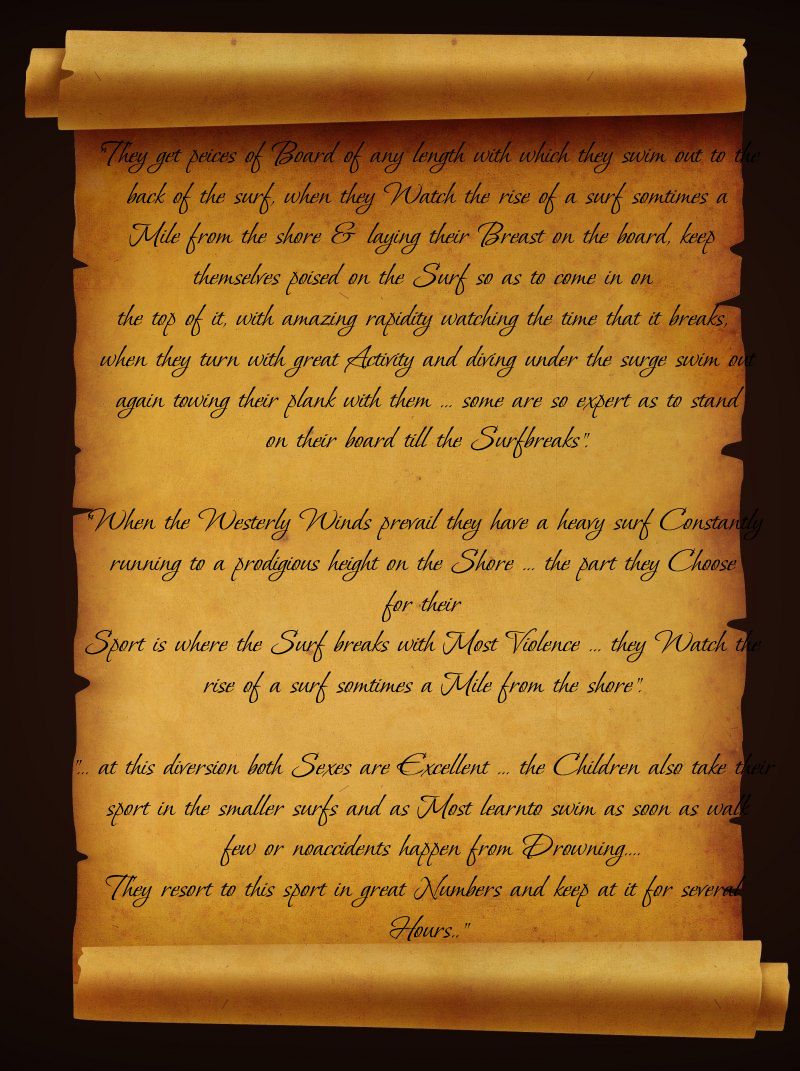 "They get peices of Board of any length with which they swim out to the
back of the surf, when they Watch the rise of a surf somtimes a
Mile from the shore & laying their Breast on the board, keep
themselves poised on the Surf so as to come in on
the top of it, with amazing rapidity watching the time that it breaks,
when they turn with great Activity and diving under the surge swim out
again towing their plank with them ... some are so expert as to stand
on their board till the Surfbreaks".
"When the Westerly Winds prevail they have a heavy surf Constantly
running to a prodigious height on the Shore ... the part they Choose
for their
Sport is where the Surf breaks with Most Violence ... they Watch the
rise of a surf somtimes a Mile from the shore".
"... at this diversion both Sexes are Excellent ... the Children also take their
sport in the smaller surfs and as Most learnto swim as soon as walk
few or noaccidents happen from Drowning....
They resort to this sport in great Numbers and keep at it for several
Hours.."